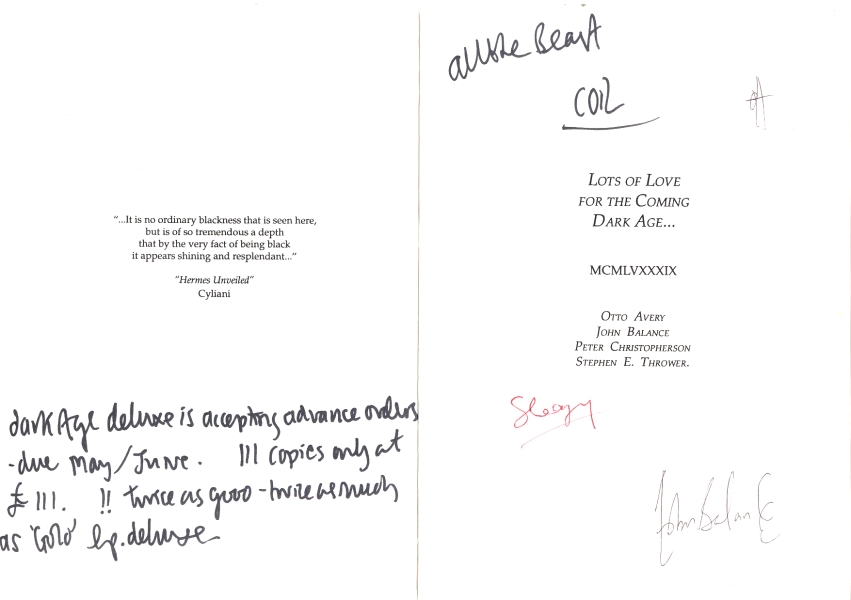 "...It is no ordinary blackness that is seen here,
but is of so tremendous a depth
that by the very fact of being black
it appears shining and resplendant..."
"Hermes Unveiled"
Cyliani
dark Age deluxe is accepting advance orders
-due May/June. 111 copies only at
£111. !! twice as good - twice as much
as 'Gold' lp. deluxe
all the Beast
COIL
LOTS OF LOVE
FOR THE COMING
DARK AGE...
MCMLVXXXIX
OTTO AVERY
JOHN BALANCE
PETER CHRISTOPHERSON
STEPHEN E. THROWER.
Sleazy
John Balance